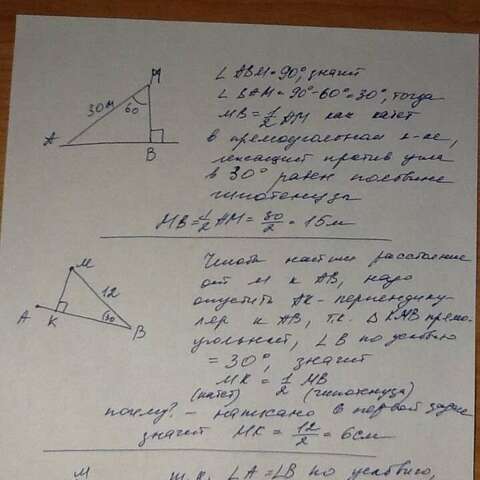 M
30м
60
A
B
∠ ABM = 90°, значит
∠ BAM = 90° - 60° = 30°, тогда
MB = 1/2 AM как катет
в прямоугольном к-ке,
лежащий против угла
в 30° равен половине
гипотенузы
MB = 1/2 AM = 30/2 = 15м
M
12
A
K
30
B
Чтобы найти расстояние
от M к AB, надо
опустить AK - перпендику
ляр к AB, т.к. Δ KMB прямо-
угольный, ∠ B по условию
= 30°, значит
MK = 1/2 MB
(катет) (гипотенуза)
почему? - написано в первой задаче
значит MK = 12/2 = 6см
M
т.к. ∠A = ∠B по условию,